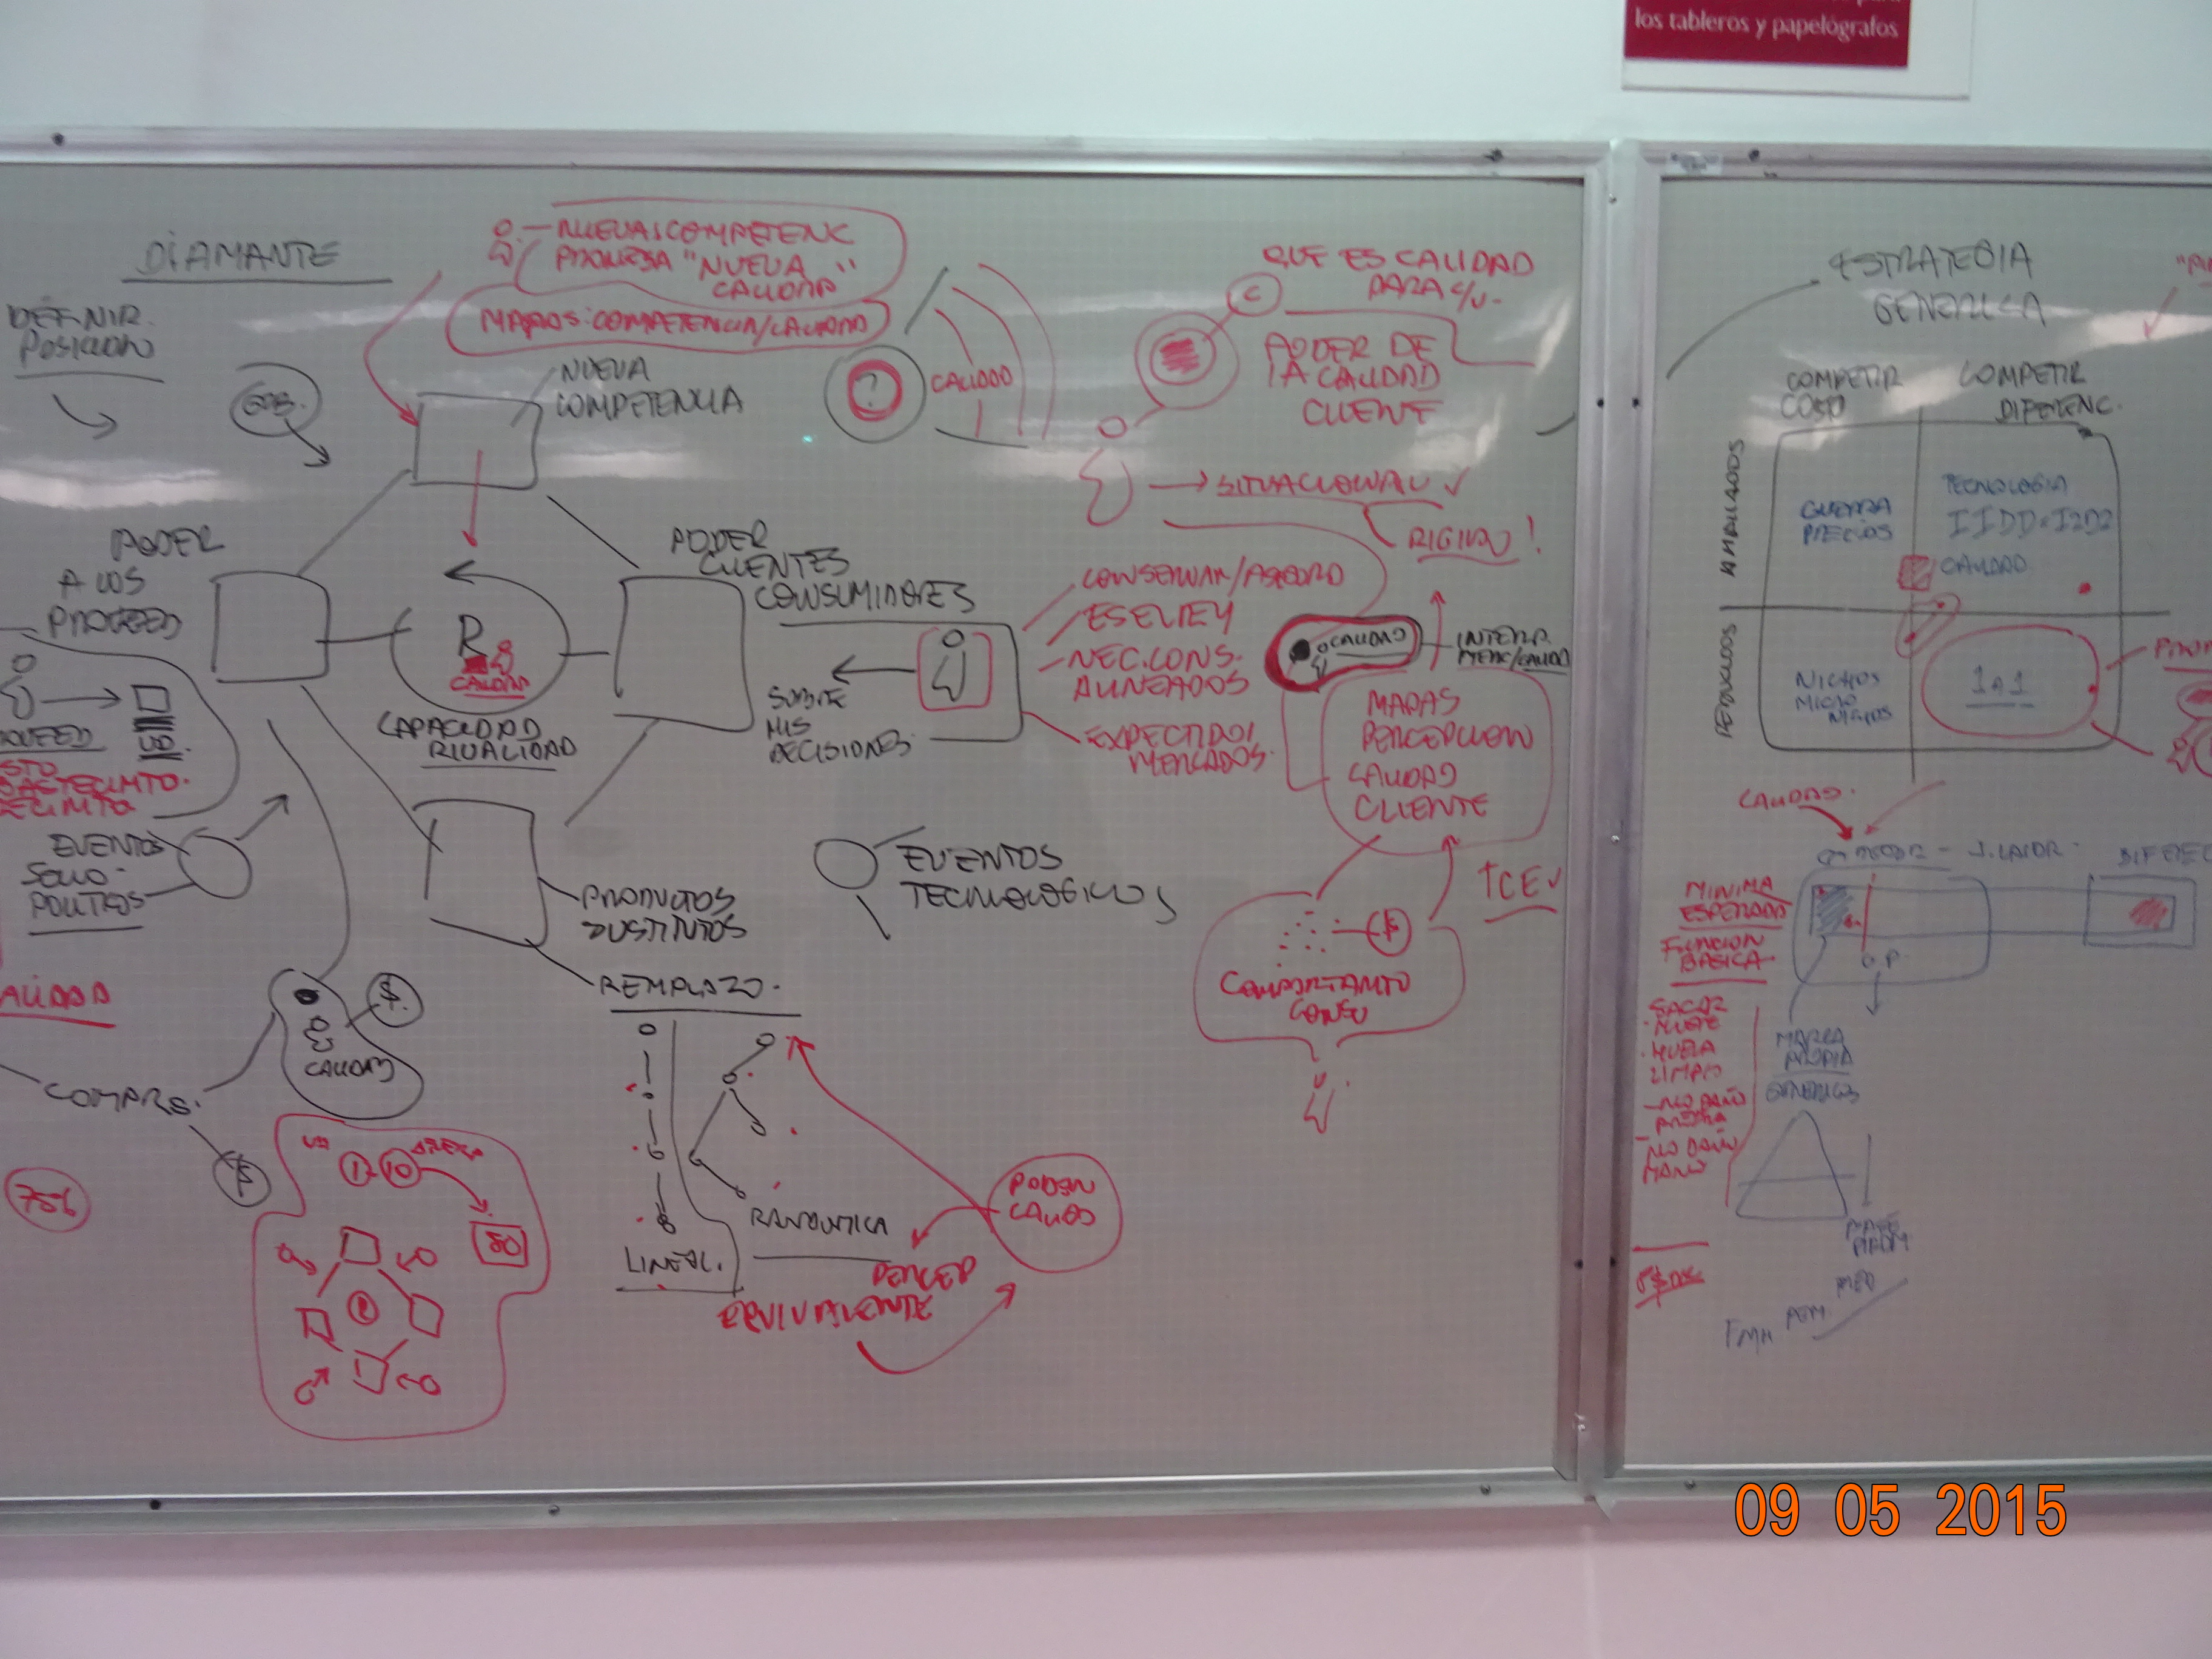 los tableros y papelógrafos
DIAMANTE
DEFINIR
POSICION
GOB.
NUEVA COMPETENC
PROMESA "NUEVA
CALIDAD"
MAPAS: COMPETENCIA/CALIDAD
NUEVA
COMPETENCIA
?
CALIDAD
C
QUE ES CALIDAD
PARA C/U.
PODER DE
LA CALIDAD
CLIENTE
SITUACIONAL ✓
RIGIDO!
PODER
A LOS
PROVEED
R
CALIDAD
CAPACIDAD
RIVALIDAD
PODER
CLIENTES
CONSUMIDORES
SOBRE
MIS
DECISIONES
ES EL REY
NEC. CONS.
ALINEADOS
MERCADOS.
CALIDAD
MAPAS
PERCEPCION
CALIDAD
CLIENTE
TCE ✓
$
COMPORTAMTO
CONSU
UD.
EVENTOS
SOCIO-
POLITICOS
EVENTOS
TECNOLOGICOS
PRODUCTOS
SUSTITUTOS
REMPLAZO.
ALIDAD
COMPRS.
$.
CALIDAD
$
75%
1-10
80
R
LINEAL.
RANDONTICA
PODER
CALIDAD
PERCEP
EQUIVALENTE
ESTRATEGIA
GENERICA
COMPETIR
COSTO
COMPETIR
DIFERENC.
AMPLIADOS
REDUCIDOS
GUERRA
PRECIOS
TECNOLOGIA
IIDD=I2D2
CALIDAD
NICHOS
MICRO
NICHOS
1 A 1
CALIDAD.
MINIMA
ESPERADA
FUNCION
BASICA.
O.P.
SACAR
MUGRE
HUELA
LIMPIO
NO DAÑO
NO DAÑO
MANO
MARCA
PROPIA
GENERICOS
09 05 2015